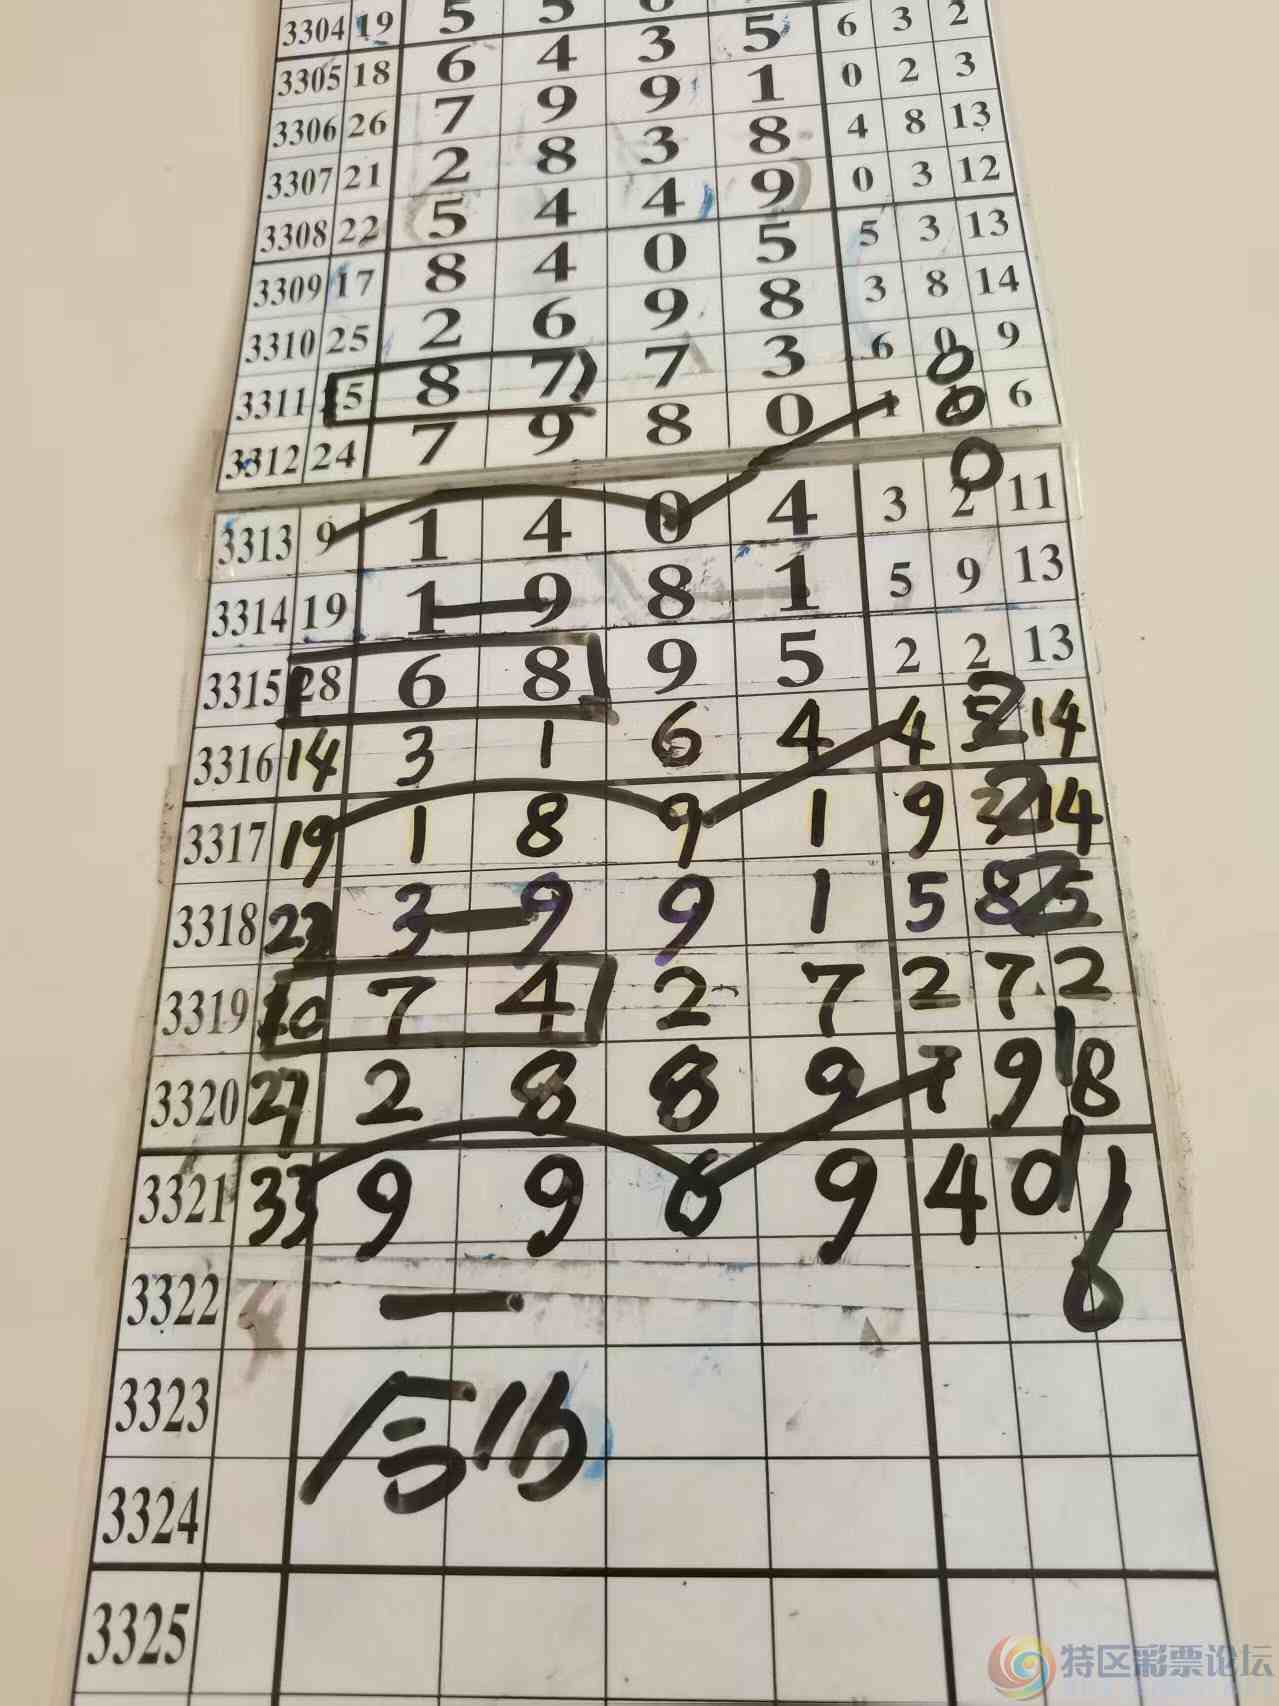 3304 19 5 5 6 5 6 3 2
3305 18 6 4 3 1 0 2 3
3306 26 7 9 9 8 4 8 13
3307 21 2 8 3 9 0 3 12
3308 22 5 4 4 5 5 3 13
3309 17 8 4 0 8 3 8 14
3310 25 2 6 9 3 6 0 9
3311 5 8 7 7 0 1 0 6
3312 24 7 9 8
3313 9 1 4 0 4 3 2 11
3314 19 1 9 8 1 5 9 13
3315 28 6 8 9 5 2 2 13
3316 14 3 1 6 4 4 2 14
3317 19 1 8 9 1 9 2 14
3318 22 3 9 9 1 5 8 25
3319 20 7 4 2 7 2 7 2
3320 27 2 8 8 9 7 9 18
3321 33 9 9 6 9 4 0 11
3322 6
3323 合16
3324
3325
特区彩票论坛